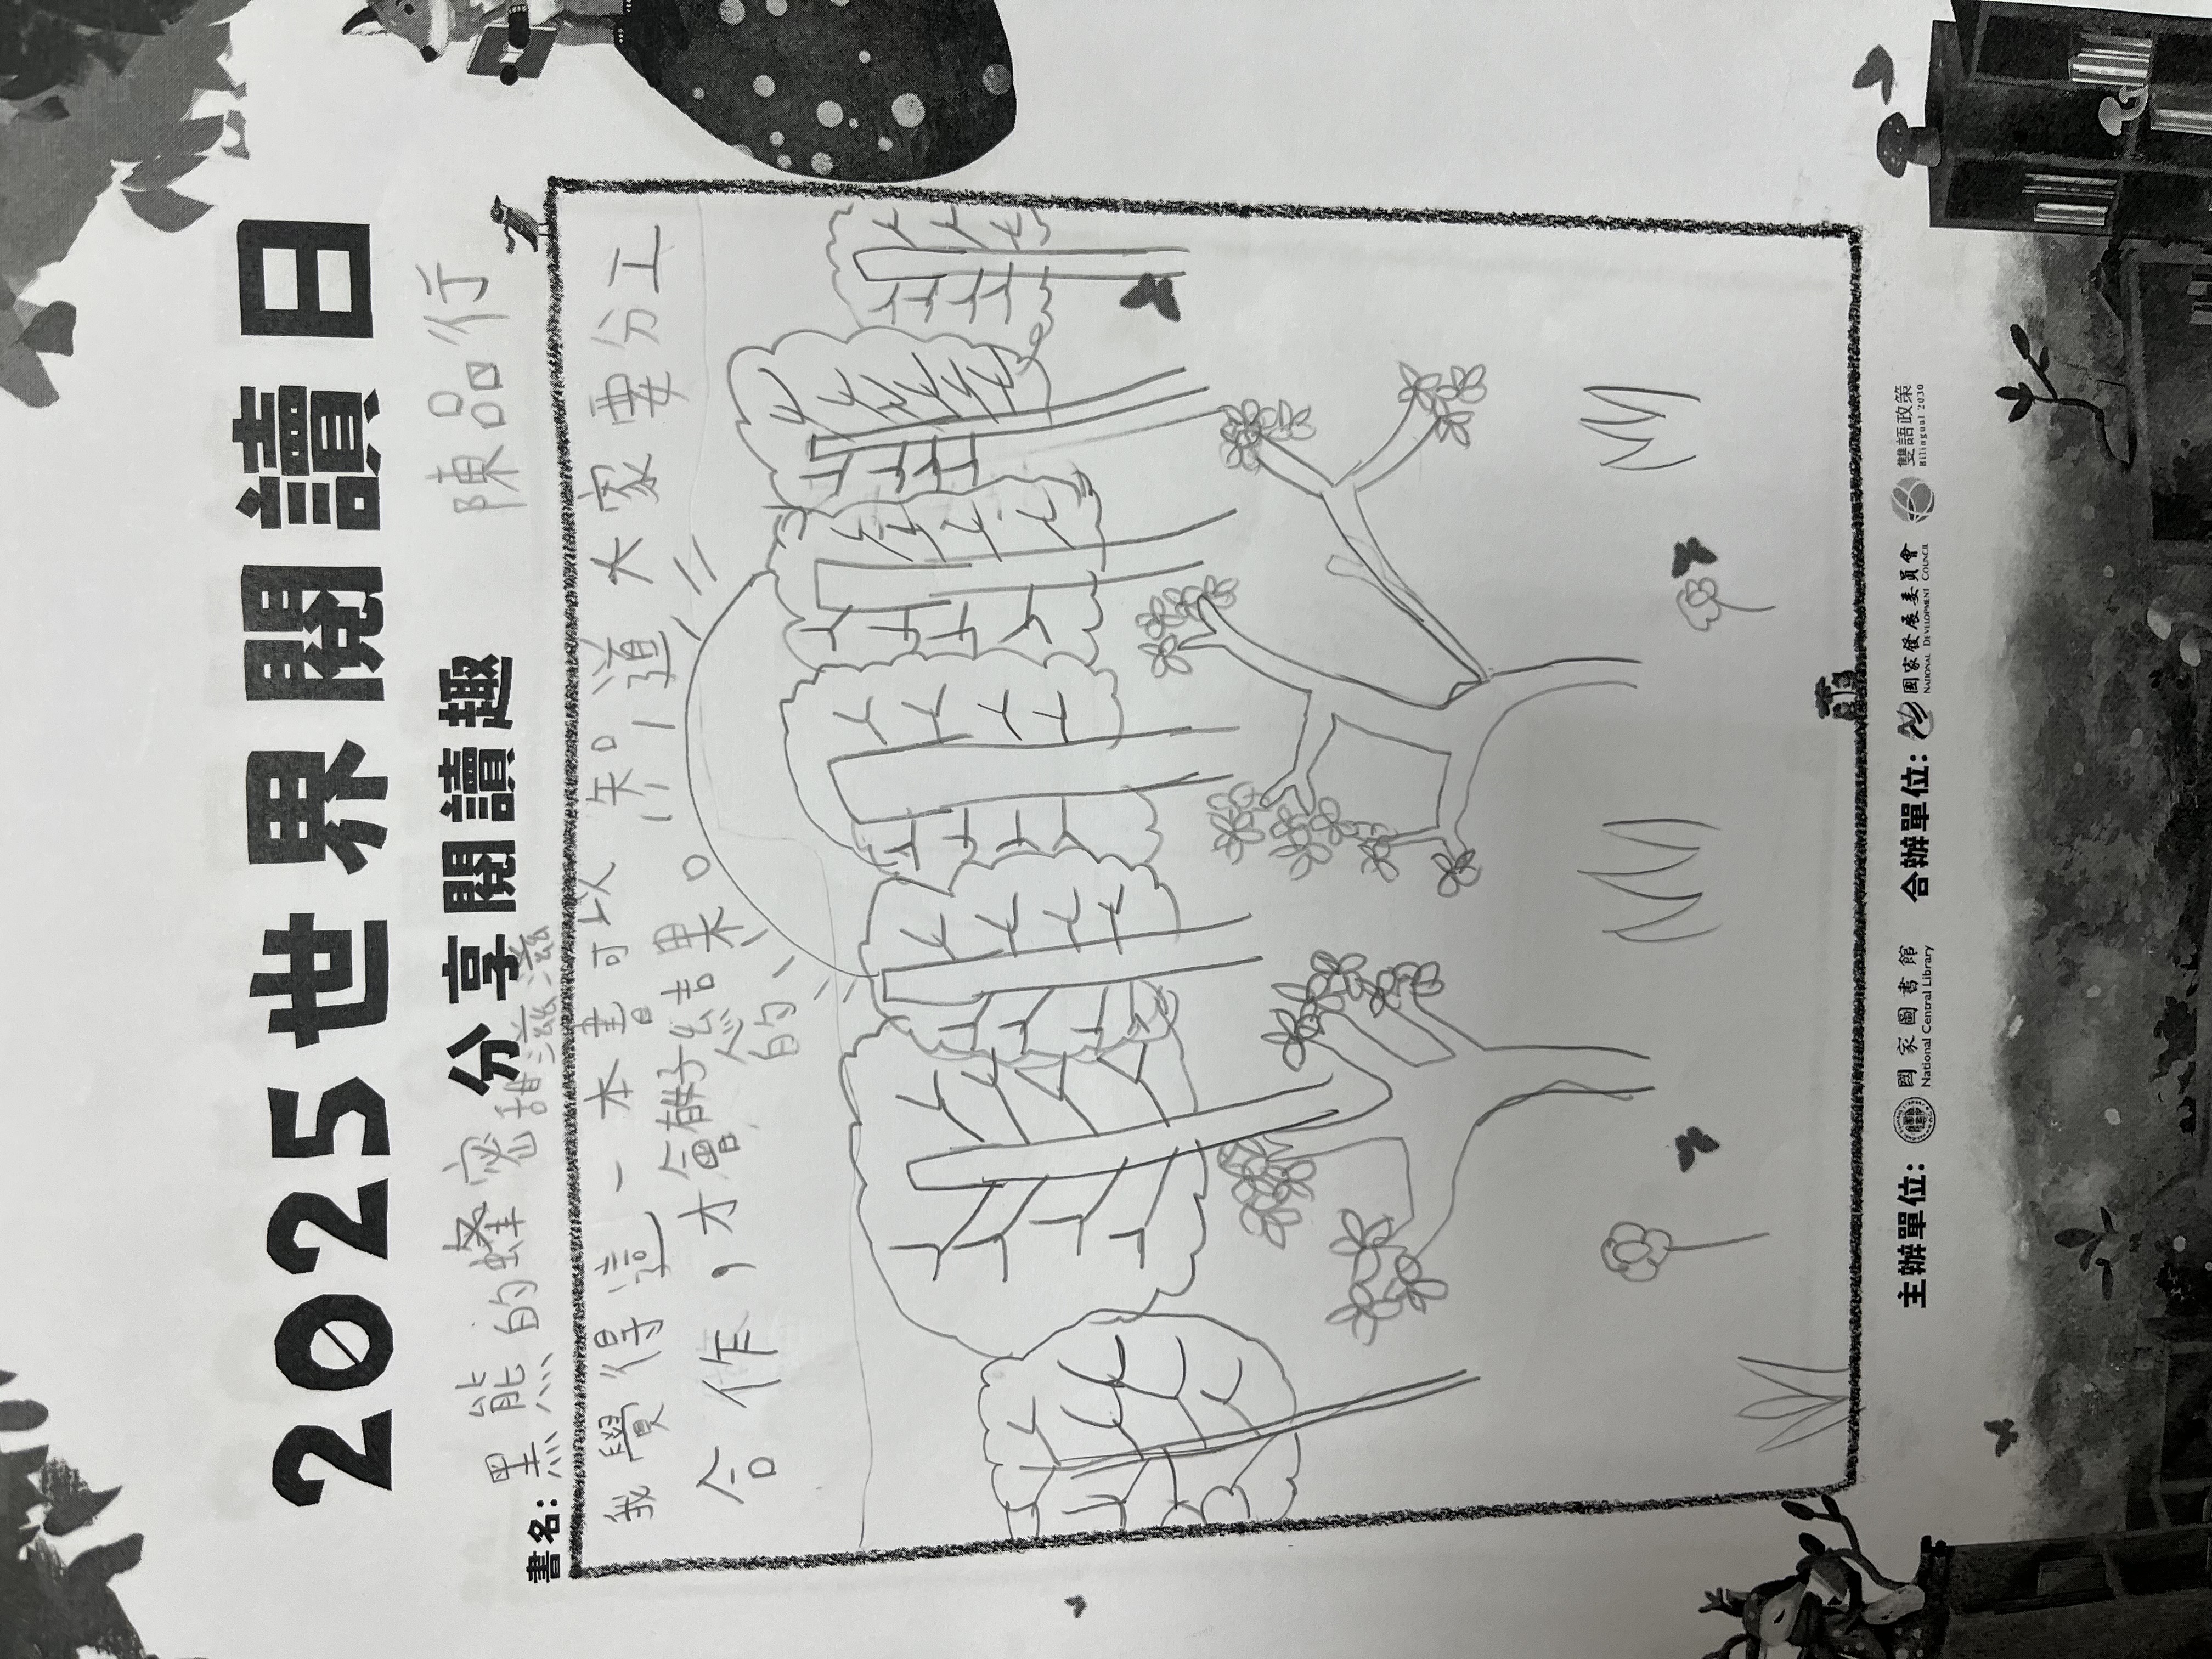 2025世界閱讀日
分享閱讀趣 陳品行
書名: 黑熊的蜂密甜滋滋
我覺得這一本書可以知道大家要分工
合作，才會有好結果。
的
主辦單位: 國家圖書館 合辦單位: 國家發展委員會 雙語政策
National Central Library NATIONAL DEVELOPMENT COUNCIL Bilingual 2030